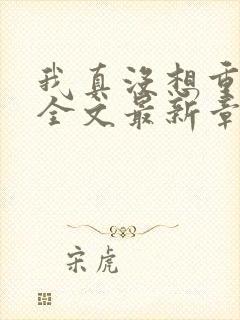 我真没想重
全文最新章
宋虎